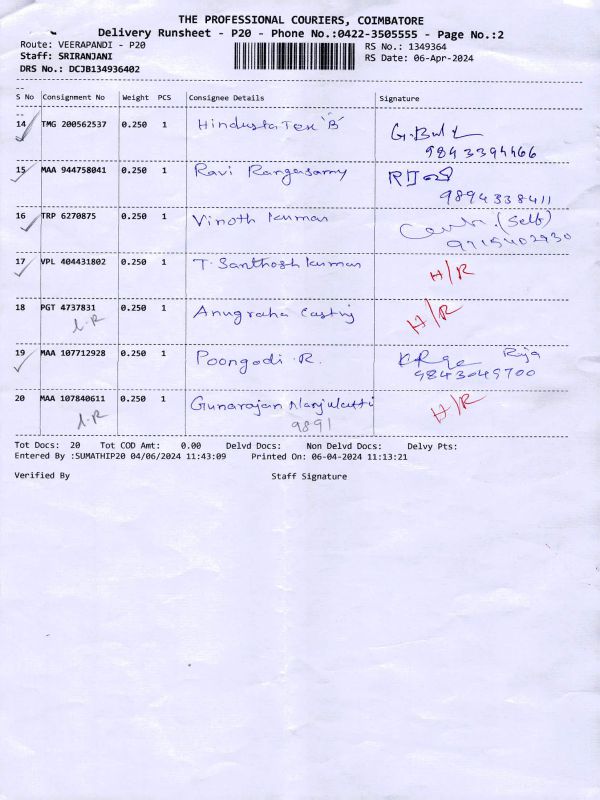 THE PROFESSIONAL COURIERS, COIMBATORE
Delivery Runsheet - P20 - Phone No.:0422-3505555 - Page No.:2
Route: VEERAPANDI - P20 RS No.: 1349364
Staff: SRIRANJANI RS Date: 06-Apr-2024
DRS No.: DCJB134936402
S No Consignment No Weight PCS Consignee Details Signature
14 TMG 200562537 0.250 1 Hindusta Tex 'B'
9843394466
15 MAA 944758041 0.250 1 Ravi Rangasamy
9894338411
16 TRP 6270875 0.250 1 Vinoth kumar (Self)
9715402930
17 VPL 404431802 0.250 1 T. Santhosh kumar H/R
18 PGT 4737831 0.250 1 Anugraha Casting H/R
19 MAA 107712928 0.250 1 Poongodi .R. Raja
9843049700
20 MAA 107840611 0.250 1 Gunarajan H/R
9891
Tot Docs: 20 Tot COD Amt: 0.00 Delvd Docs: Non Delvd Docs: Delvy Pts:
Entered By :SUMATHIP20 04/06/2024 11:43:09 Printed On: 06-04-2024 11:13:21
Verified By Staff Signature